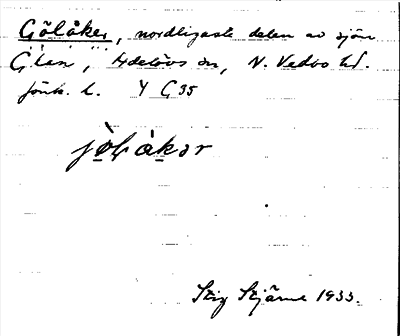 Gölåker, nordligaste delen av sjön
Glan, Adelövs sn, N. Vedbo hd.
Jönk. l. Y G 35
jö̀l åkər
Stig Stjärne 1933.